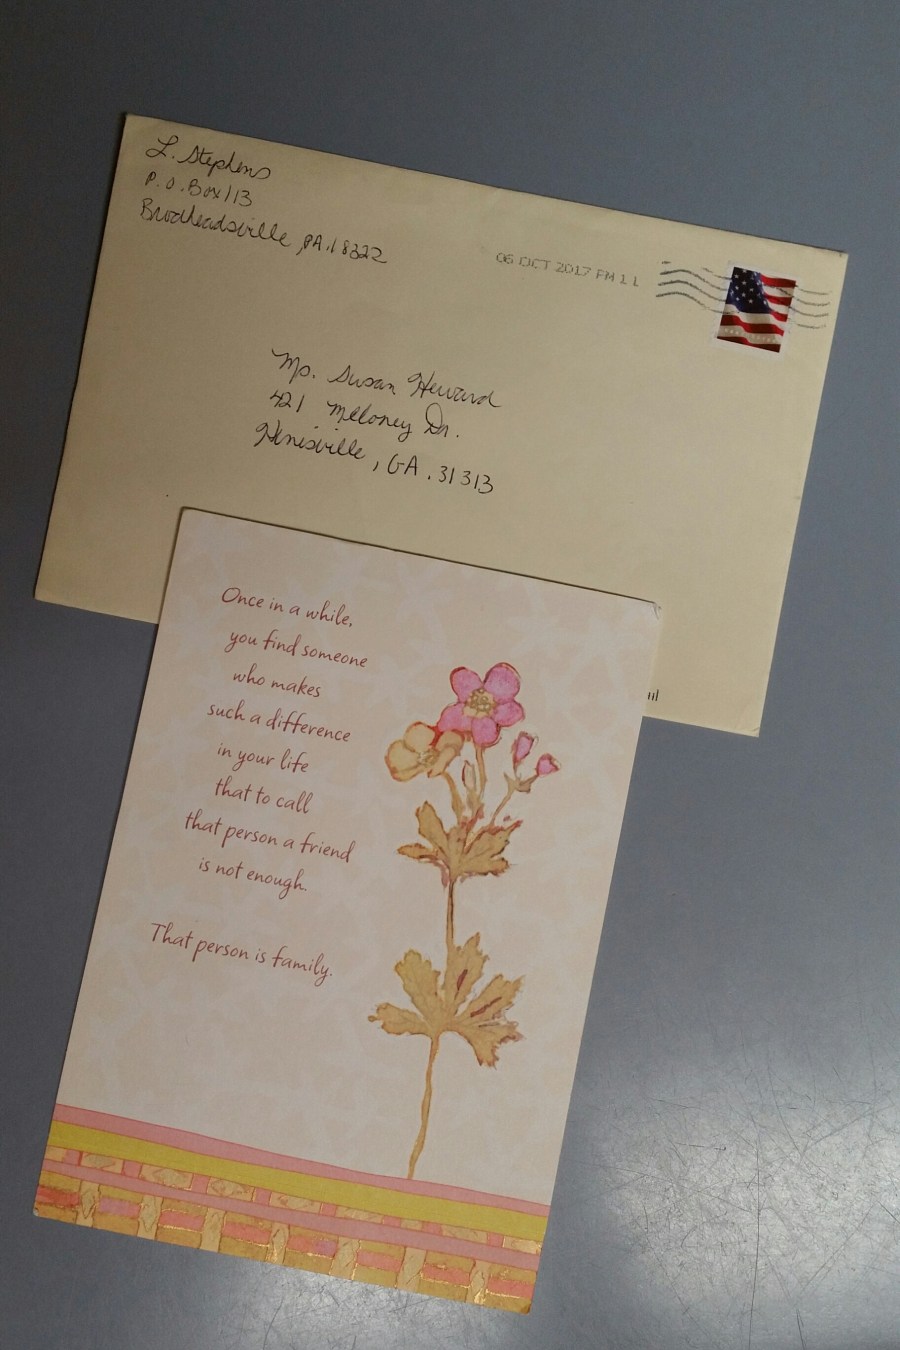 L. Stephens
P.O. Box 113
Brodheadsville, PA. 18322
06 OCT 2017 PM 1 L
Ms. Susan Howard
421 Meloney Dr.
Hinesville, GA. 31313
Once in a while,
you find someone
who makes
such a difference
in your life
that to call
that person a friend
is not enough.
That person is family.